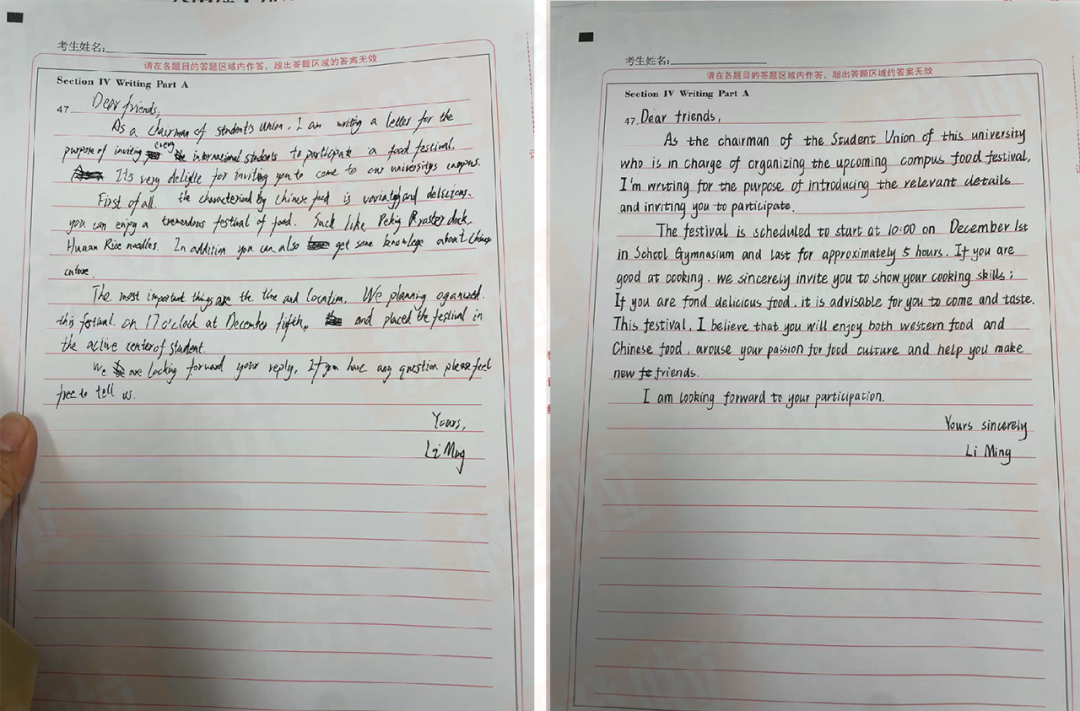 考生姓名:
请在各题目的答题区域内作答,超出答题区域的答案无效
Section IV Writing Part A
47. Dear friends,
As a chairman of student's union, I am writing a letter for the
purpose of inviting every international students to participate a food festival.
It's very delight for inviting you to come to our university's campus.
First of all, the characterized by chinese food is and delicious.
you can enjoy a tremendous festival of food. Such like duck,
Hunan Rice noodles. In addition you can also get some knowlege about Chinese
culture.
The most important things are the time and location. We planning oganized
this festival on 17 o'clock at December fifth, and placed the festival in
the active center of student.
We are looking forward your reply, If you have any question please feel
free to tell us.
Yours,
Li Ming
考生姓名:
请在各题目的答题区域内作答,超出答题区域的答案无效
Section IV Writing Part A
47. Dear friends,
As the chairman of the Student Union of this university
who is in charge of organizing the upcoming compus food festival,
I'm writing for the purpose of introducing the relevant details
and inviting you to participate.
The festival is scheduled to start at 10:00 on December 1st
in School Gymnasium and last for approximately 5 hours. If you are
good at cooking, we sincerely invite you to show your cooking skills;
If you are fond delicious food, it is advisable for you to come and taste.
This festival, I believe that you will enjoy both western food and
Chinese food, arouse your passion for food culture and help you make
new friends.
I am looking forward to your participation.
Yours sincerely
Li Ming